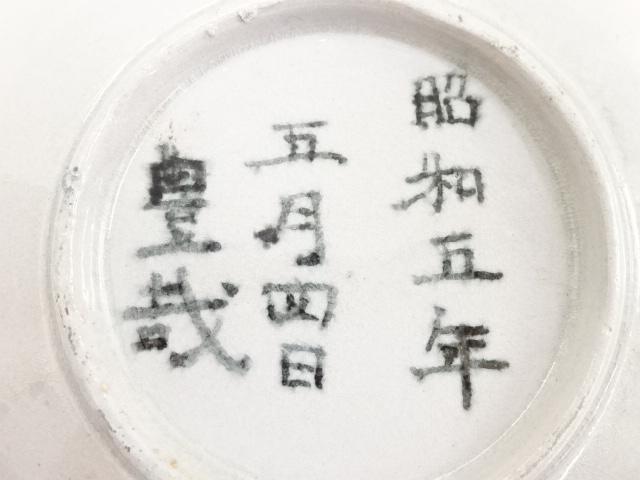 昭和五年
五月四日
豊哉